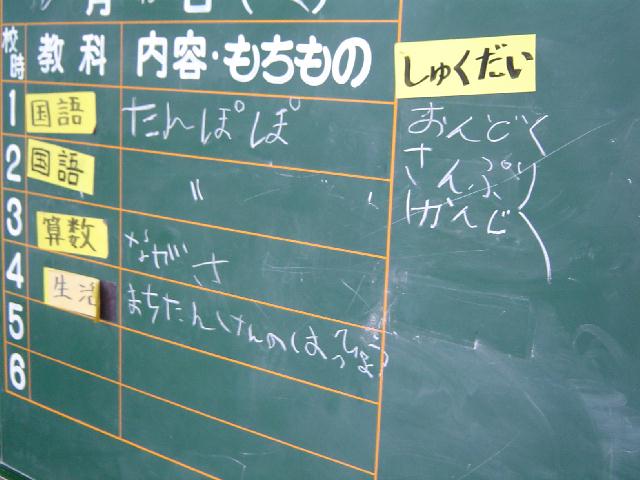 月 日（
校時 教科 内容・もちもの しゅくだい
1 国語 たんぽぽ おんどく
2 国語 〃 さんぷり
3 算数 ながさ かんじ
4 生活 まちたんけんのはっぴょう
5
6